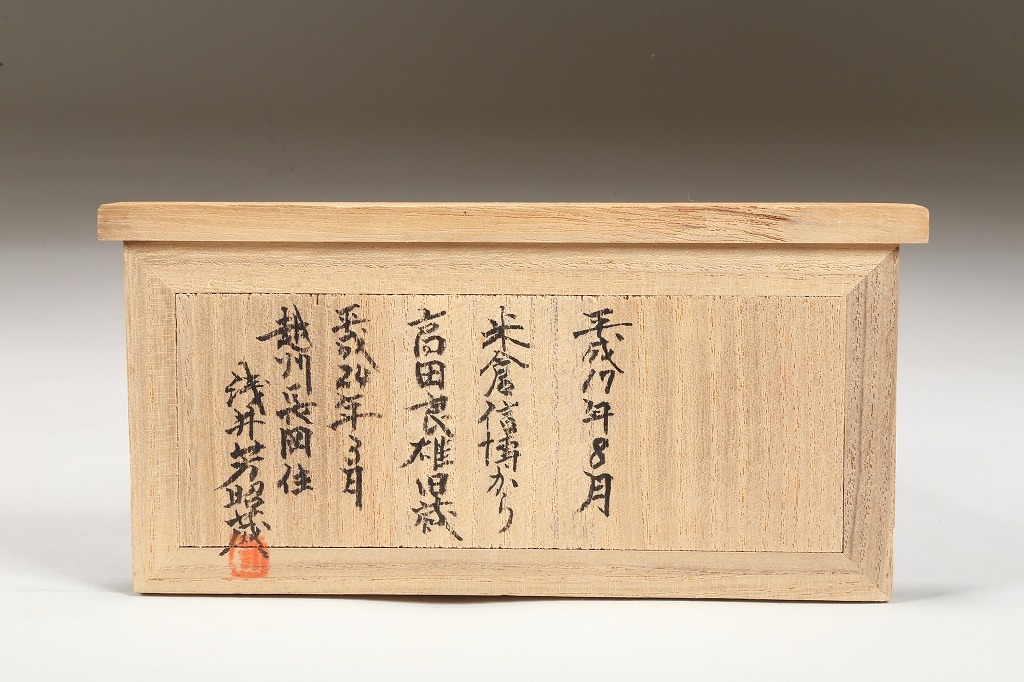 平成17年8月
米倉信博から
高田良雄旧蔵
平成24年3月
越州長岡住
浅井芳昭蔵